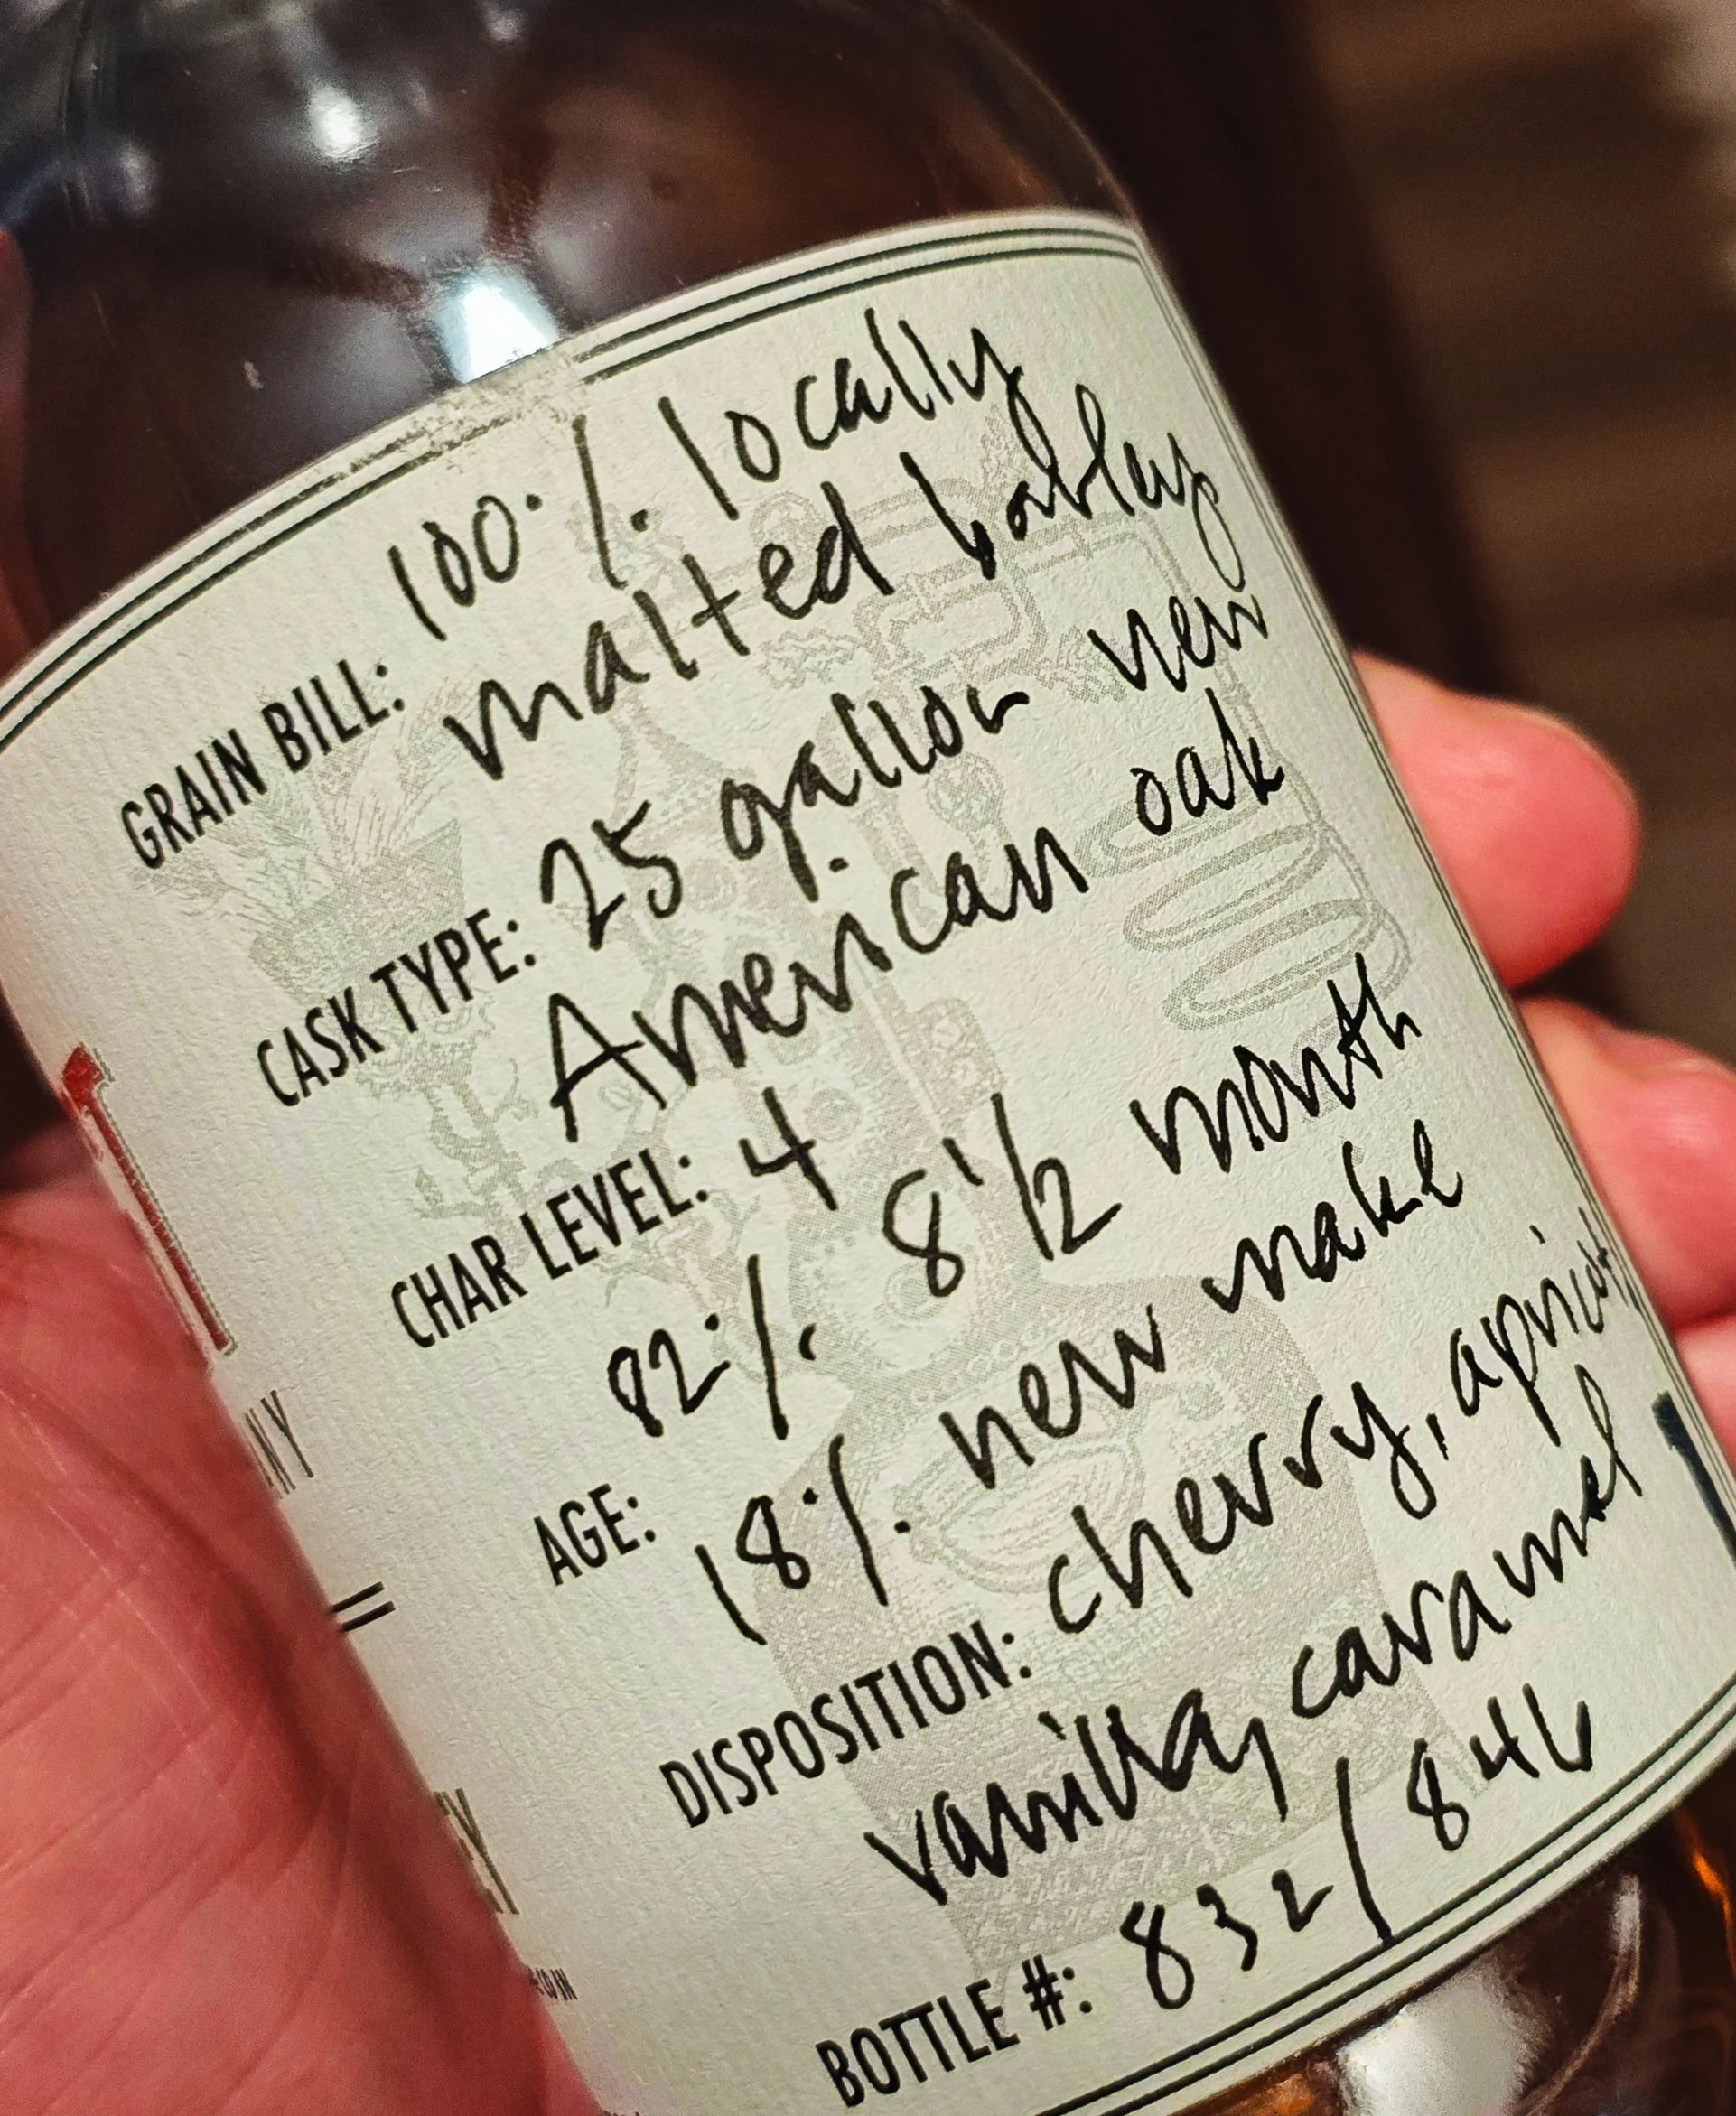 GRAIN BILL: 100% locally
malted barley
CASK TYPE: 25 gallon new
American oak
CHAR LEVEL: 4
AGE: 82% 8 1/2 month
18% new make
DISPOSITION: cherry, apricot,
vanilla, caramel
BOTTLE #: 832/846
NY